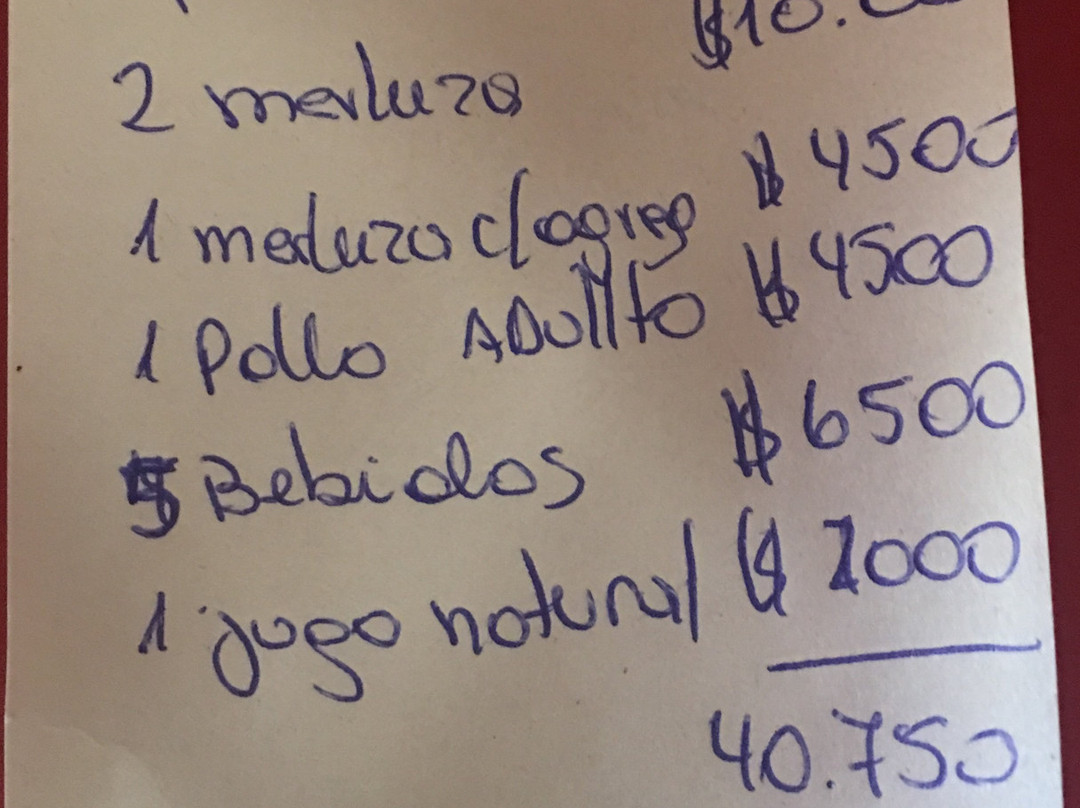 2 merluza $10.
1 merluza c/agreg $4500
1 Pollo ADullto $4500
5 Bebidas $6500
1 jugo natural $ 1000
40.750